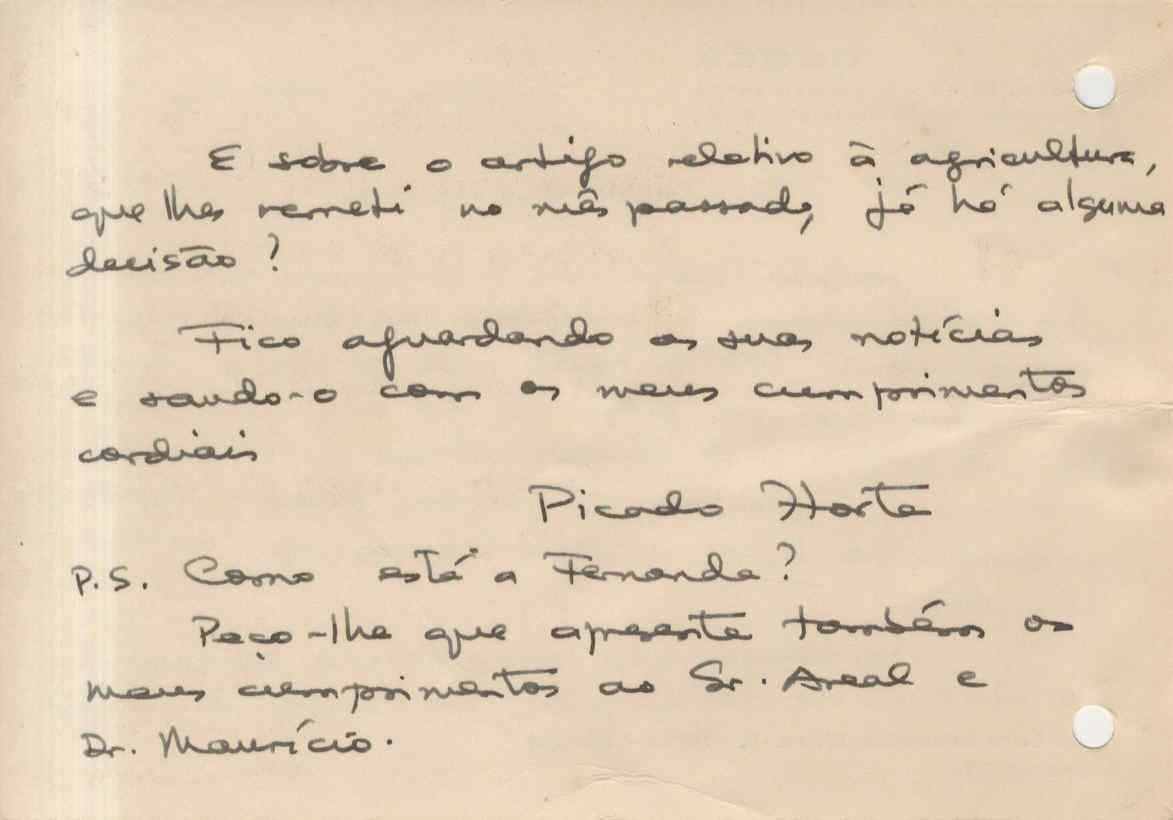 E sobre o artigo relativo à agricultura,
que lhes remeti no mês passado, já há alguma
decisão?
Fico aguardando as suas notícias
e saudo-o com os meus cumprimentos
cordiais
Picado Horta
P.S. Como está a Fernanda?
Peço-lhe que apresente também os
meus cumprimentos ao Sr. Areal e
Dr. Maurício.